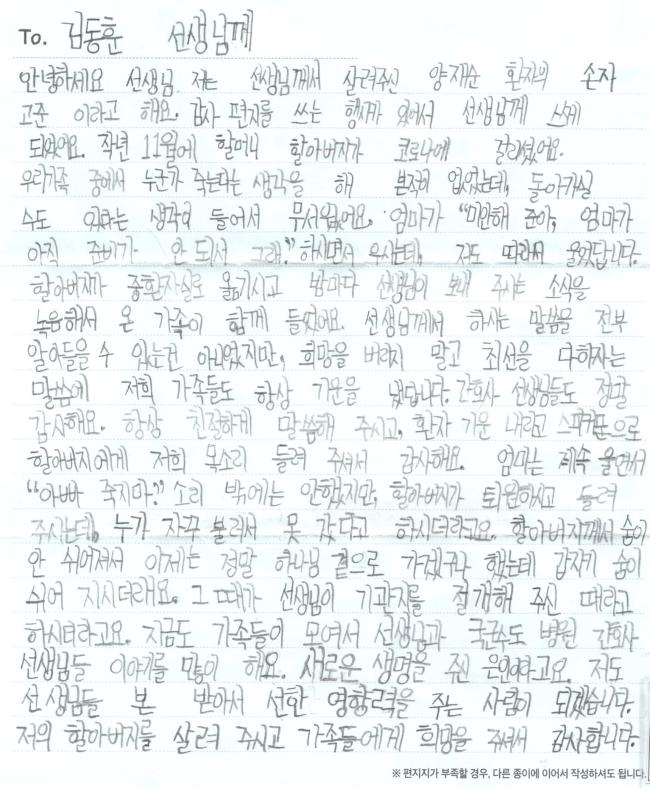 To. 김동훈 선생님께
안녕하세요 선생님 저는 선생님께서 살려주신 양재순 환자의 손자
고준 이라고 해요. 감사 편지를 쓰는 행사가 있어서 선생님께 쓰게
되었어요. 작년 11월에 할머니 할아버지가 코로나에 걸리셨어요.
우리가족 중에서 누군가 죽는다는 생각을 해 본적이 없었는데, 돌아가실
수도 있다는 생각이 들어서 무서웠어요. 엄마가 "미안해 준아, 엄마가
아직 준비가 안 되서 그래." 하시면서 우시는데, 저도 따라서 울었답니다.
할아버지가 중환자실로 옮기시고 밤마다 선생님이 보내 주시는 소식을
녹음해서 온 가족이 함께 들었어요. 선생님께서 하시는 말씀을 전부
알아들을 수 있는건 아니었지만, 희망을 버리지 말고 최선을 다하자는
말씀에 저희 가족들도 항상 기운을 냈답니다. 간호사 선생님들도 정말
감사해요. 항상 친절하게 말씀해 주시고, 환자 기운 내라고 스피커폰으로
할아버지에게 저희 목소리 들려 주셔서 감사해요. 엄마는 계속 울면서
"아빠 죽지마." 소리 밖에는 안했지만, 할아버지가 퇴원하시고 들려
주시는데, 누가 자꾸 불러서 못 갔다고 하시더라고요. 할아버지께서 숨이
안 쉬어져서 이제는 정말 하나님 곁으로 가겠구나 했는데 갑자기 숨이
쉬어 지시더래요. 그 때가 선생님이 기관지를 절개해 주신 때라고
하시더라고요. 지금도 가족들이 모여서 선생님과 국군수도 병원 간호사
선생님들 이야기를 많이 해요. 새로운 생명을 주신 은인이라고요. 저도
선생님들 본 받아서 선한 영향력을 주는 사람이 되겠습니다.
저의 할아버지를 살려 주시고 가족들에게 희망을 주셔서 감사합니다.
※ 편지지가 부족할 경우, 다른 종이에 이어서 작성하셔도 됩니다.